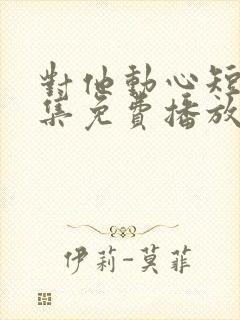 對他動心短
集免費播放
伊莉-莫菲